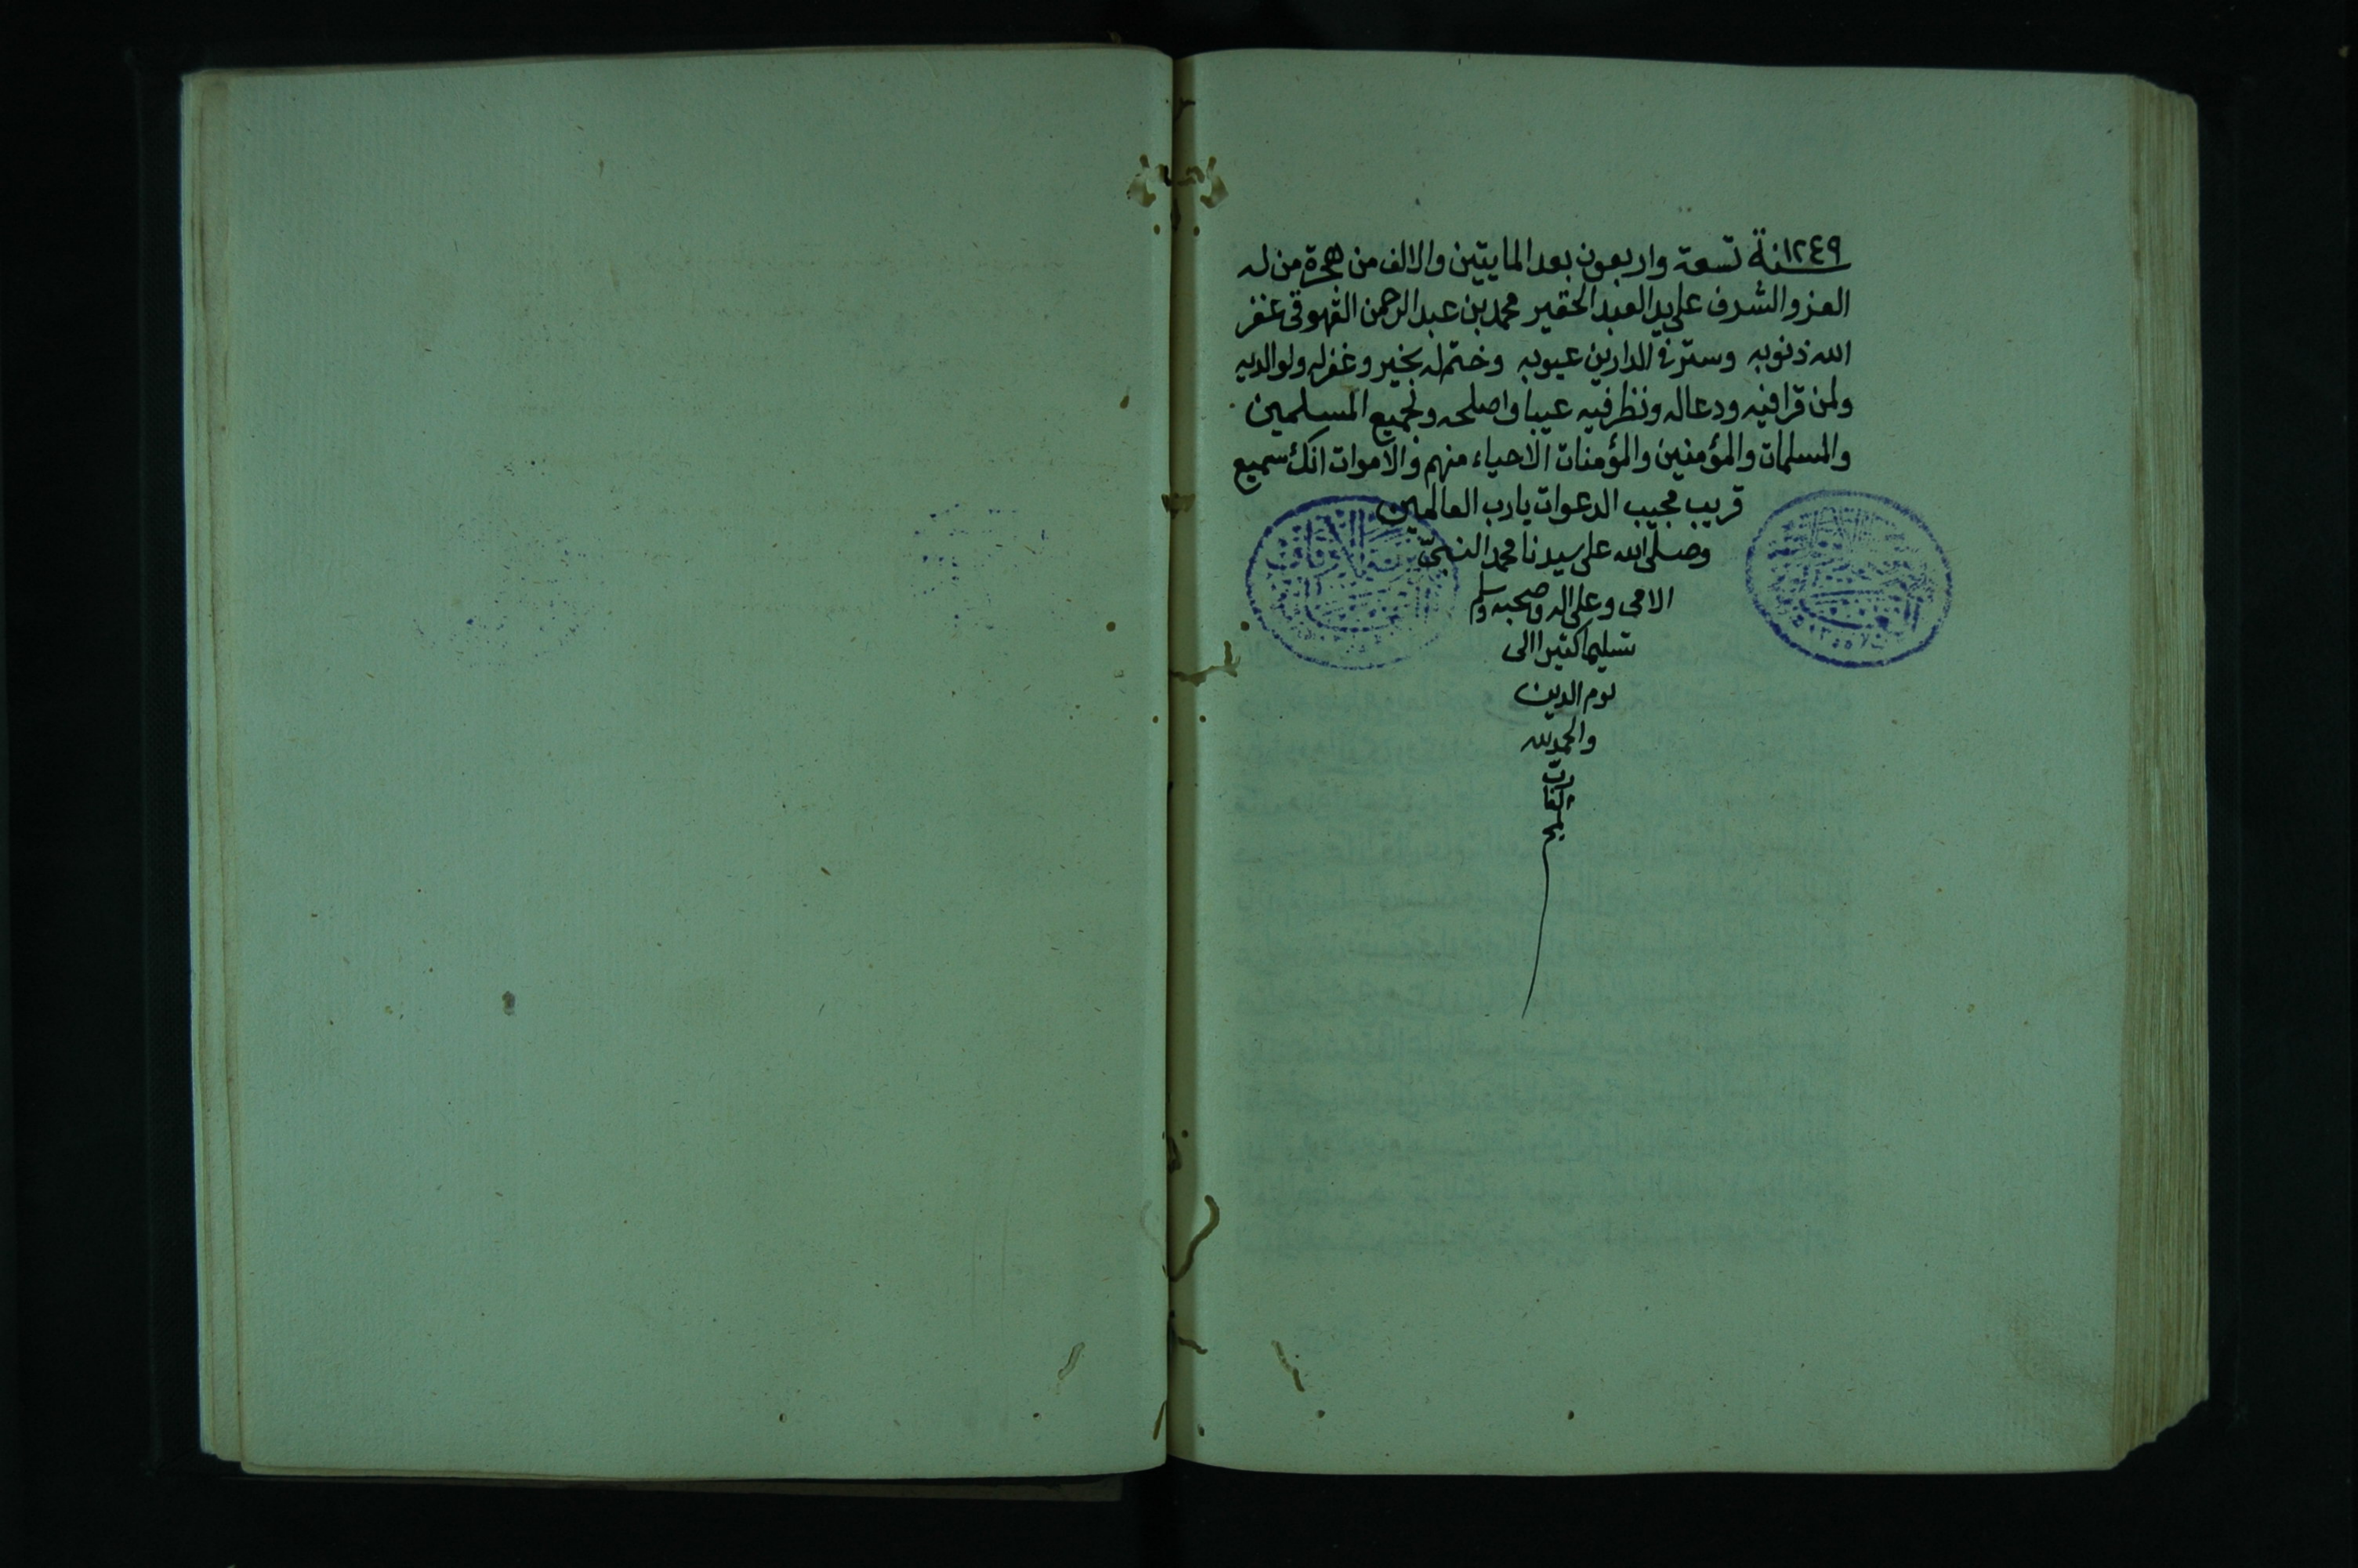 ١٢٤٩
سنة تسعة واربعون بعد المايتين والالف من هجرة من له
العز والشرف على يد العبد الحقير محمد بن عبد الرحمن القهوقى غفر
الله ذنوبه وستر فى الدارين عيوبه وختم له بخير وغفر له ولوالديه
ولمن قرا فيه ودعا له ونظر فيه عيبا واصلحه ولجميع المسلمين
والمسلمات والمؤمنين والمؤمنات الاحياء منهم والاموات انك سميع
قريب مجيب الدعوات يارب العالمين
وصلى الله على سيدنا محمد النبى
الامى وعلى اله وصحبه وسلم
تسليما كثيرا الى
يوم الدين
والحمد لله
رب
العا
لمين